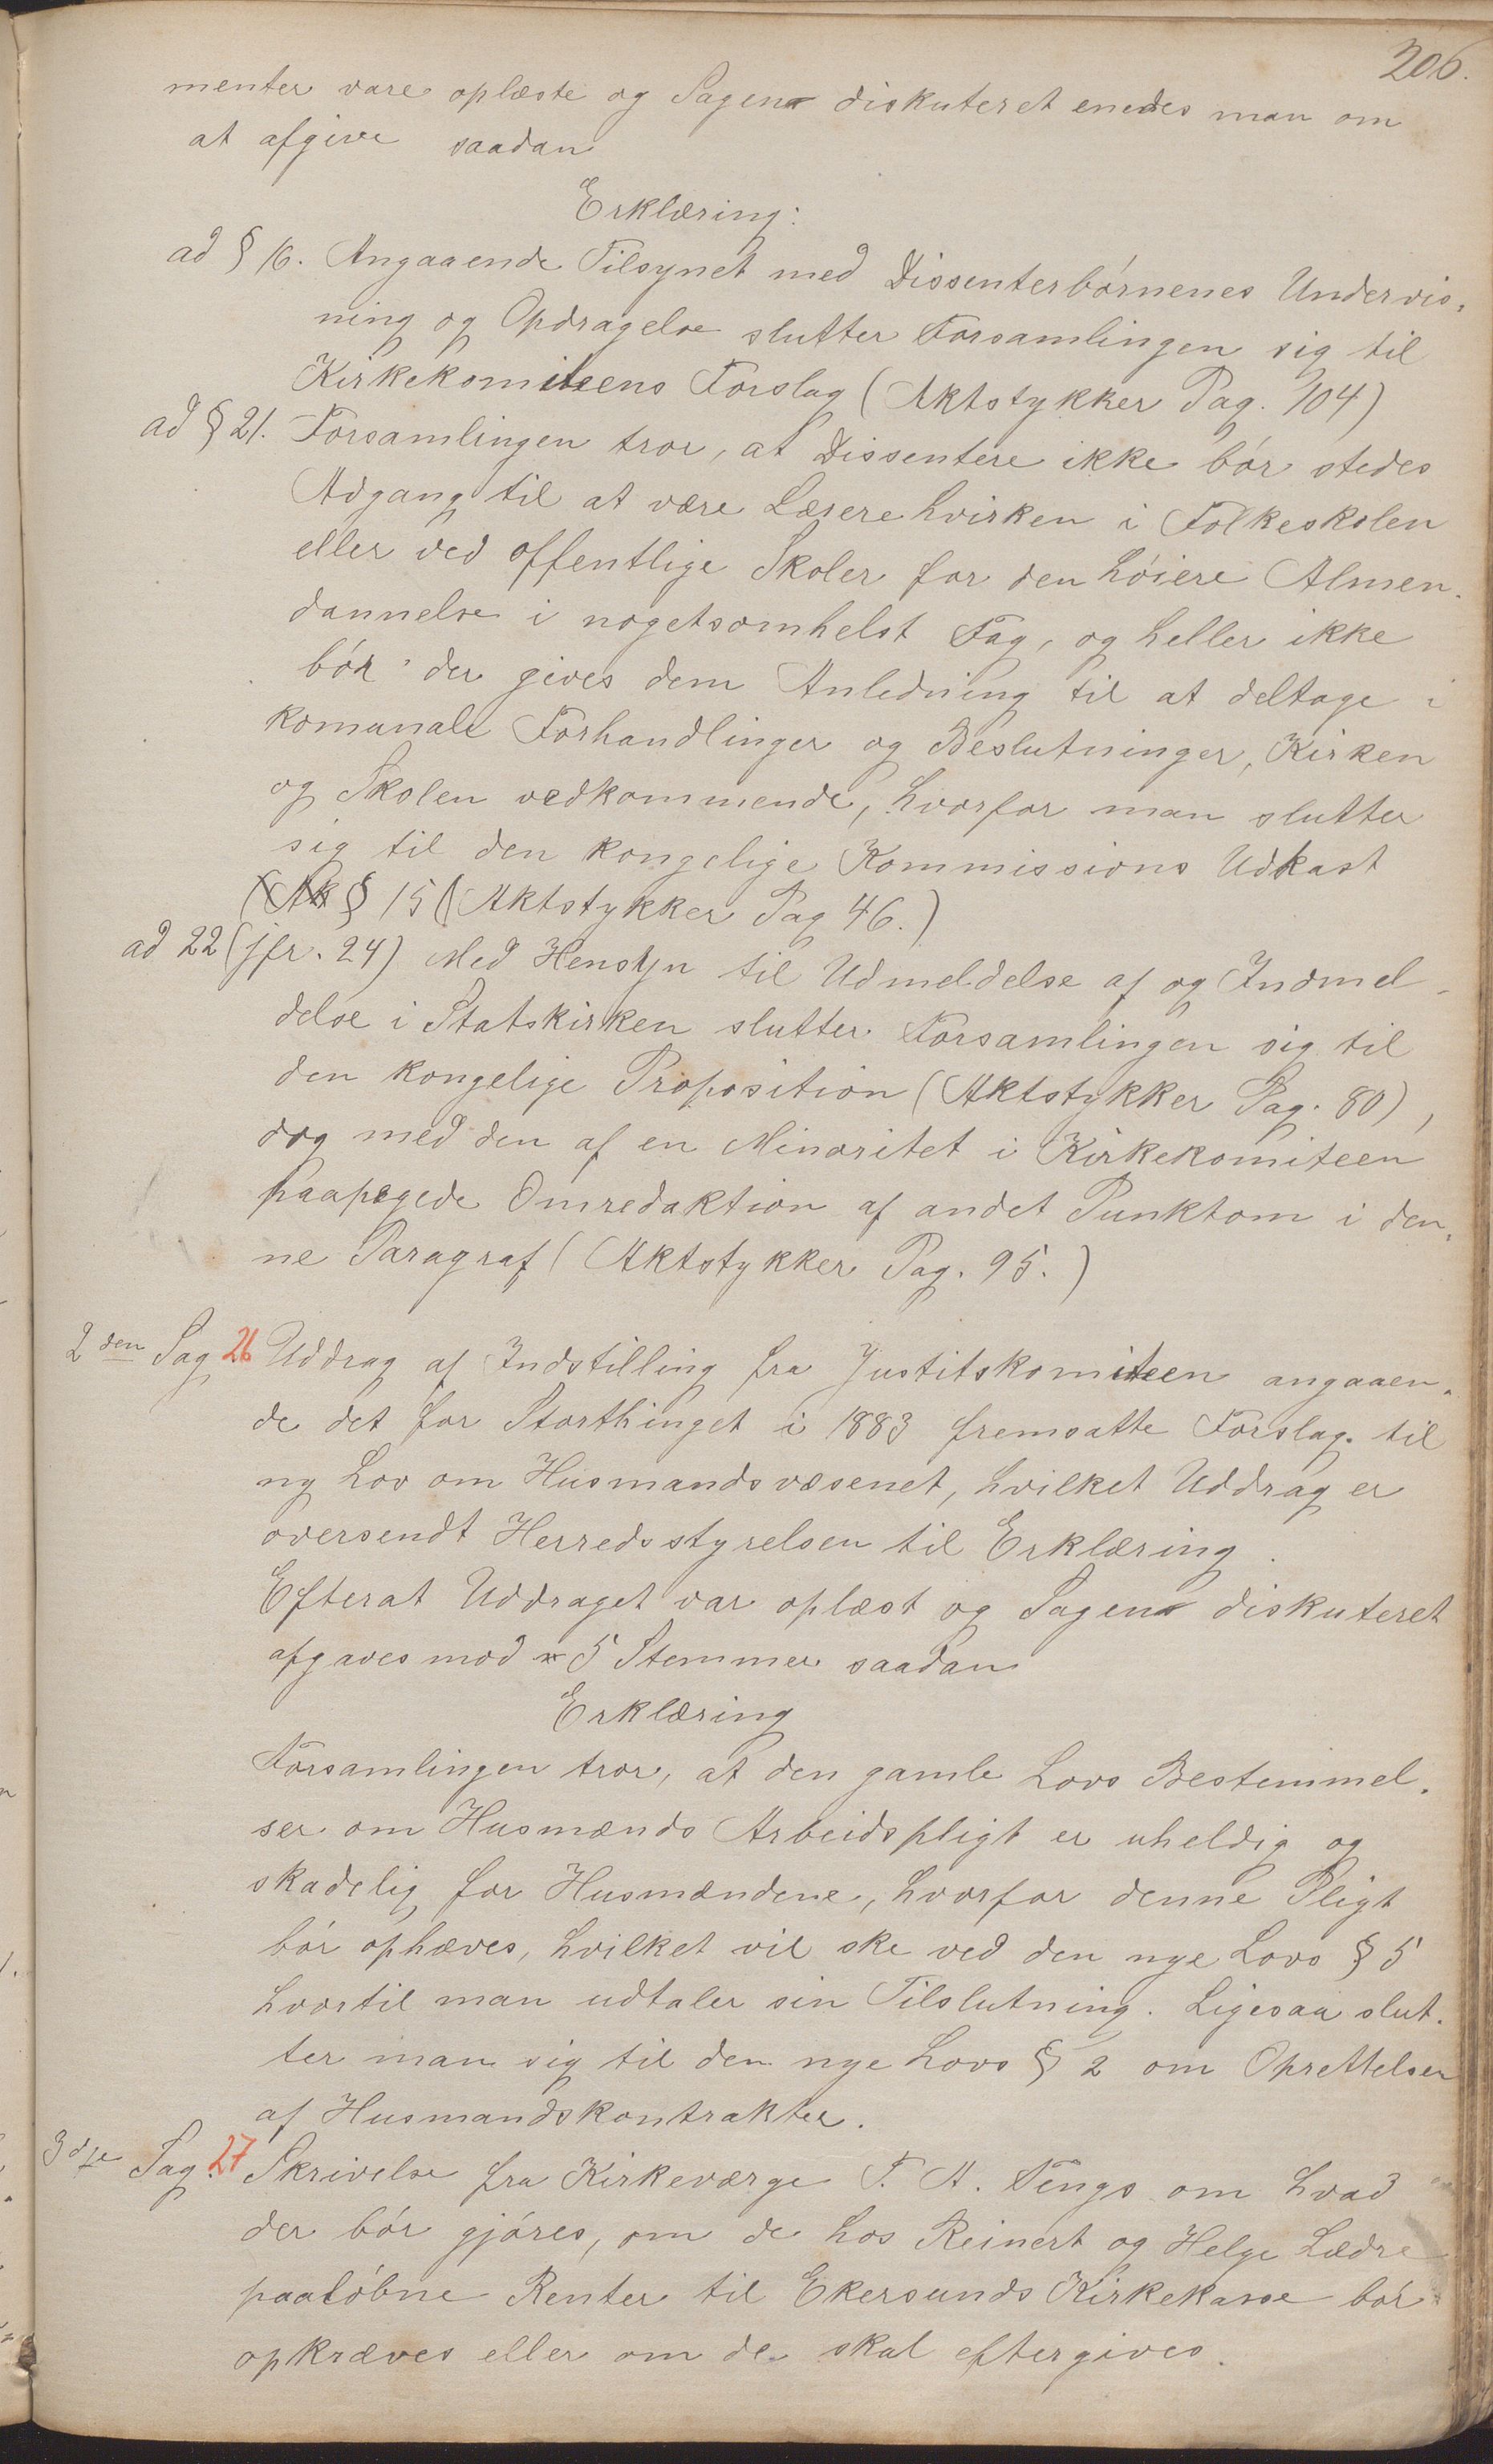 206.
menter vare oplæste og Sagen diskuteret enedes man om
at afgive saadan
Erklæring:
ad § 16. Angaaende Tilsynet med Dissenterbórnenes Undervis-
ning og Opdragelse slutter Forsamlingen sig til
Kirkekomiteens Forslag (Aktstykker Pag. 104)
ad § 21. Forsamlingen tror, at Dissentere ikke bór stedes
Adgang til at være Lærere hvirken i Folkeskolen
eller ved offentlige Skoler for den hóiere Almen-
dannelse i nogetsomhelst Fag, og heller ikke
bór der gives dem Anledning til at deltage i
komunale Forhandlinger og Beslutninger, Kirken
og Skolen vedkommende, hvorfor man slutter
sig til den kongelige Kommissions Udkast
(Ak § 15 (Aktstykker Pag 46.)
ad 22 (jfr. 24) Med Hensyn til Udmeldelse af og Indmel-
delse i Statskirken slutter Forsamlingen sig til
den kongelige Proposition (Aktstykker Pag. 80),
dog med den af en Minoritet i Kirkekomiteen
paapegede Omredaktion af andet Punktom i den-
ne Paragraf (Aktstykker Pag. 95.)
2den Sag 26 Uddrag af Indstilling fra Justitskomiteen angaaen-
de det for Storthinget i 1883 fremsatte Forslag til
ny Lov om Husmandsvæsenet, hvilket Uddrag er
oversendt Herredsstyrelsen til Erklæring.
Efterat Uddraget var oplæst og Sagen diskuteret
afgaves mod 5 Stemmer saadan
Erklæring
Forsamlingen tror, at den gamle Lovs Bestemmel-
ser om Husmænds Arbeidspligt er uheldig og
skadelig for Husmændene, hvorfor denne Pligt
bór ophæves, hvilket vil ske ved den nye Lovs § 5
hvortil man udtaler sin Tilslutning. Ligesaa slut-
ter man sig til den nye Lovs § 2 om Oprettelsen
af Husmandskontrakter.
3die Sag. 27 Skrivelse fra Kirkeværge T. A. Tengs om hvad
der bór gjóres, om de hos Reinert og Helge Lædre
paalóbne Renter til Ekersunds Kirkekasse bór
opkræves eller om de skal eftergives.